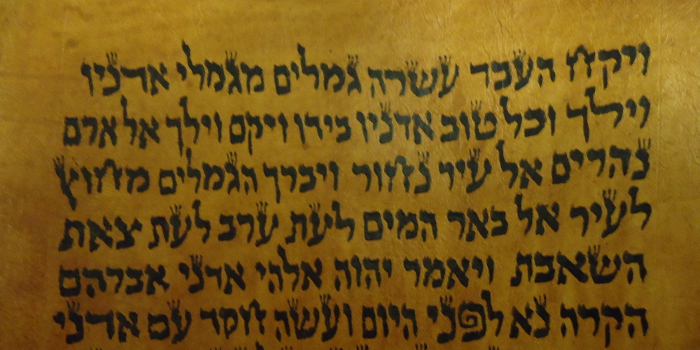 ויקח העבד עשרה גמלים מגמלי אדניו
וילך וכל טוב אדניו בידו ויקם וילך אל ארם
נהרים אל עיר נחור ויברך הגמלים מחוץ
לעיר אל באר המים לעת ערב לעת צאת
השאבת ויאמר יהוה אלהי אדני אברהם
הקרה נא לפני היום ועשה חסד עם אדני